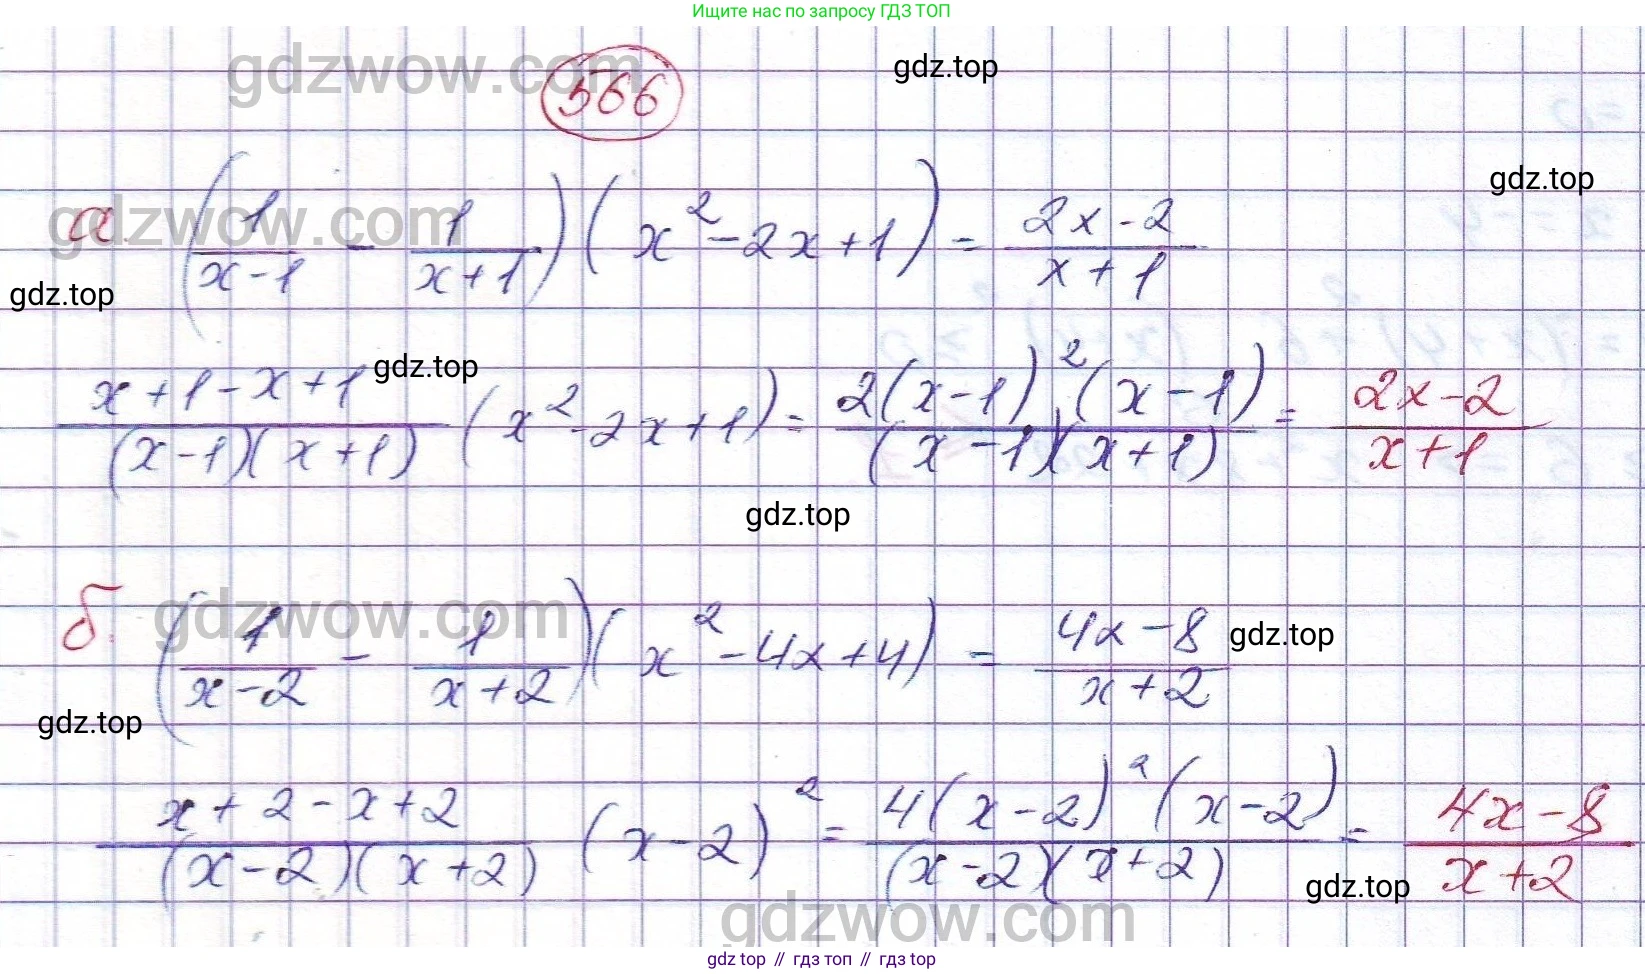 Ищите нас по запросу ГДЗ ТОП
gdzwow.com
566
gdz.top
gdz.top
gdzwow.com
а. (1/(x-1) - 1/(x+1))(x² - 2x + 1) = (2x-2)/(x+1)
gdz.top
gdz.top
(x+1-x+1)/((x-1)(x+1)) (x² - 2x + 1) = 2(x-1)²(x-1)/((x-1)(x+1)) = (2x-2)/(x+1)
gdz.top
gdzwow.com
б. (1/(x-2) - 1/(x+2))(x² - 4x + 4) = (4x-8)/(x+2)
gdz.top
gdz.top
(x+2-x+2)/((x-2)(x+2)) (x-2)² = 4(x-2)²(x-2)/((x-2)(x+2)) = (4x-8)/(x+2)
gdz.top
gdzwow.com
gdz.top // гдз топ // гдз top